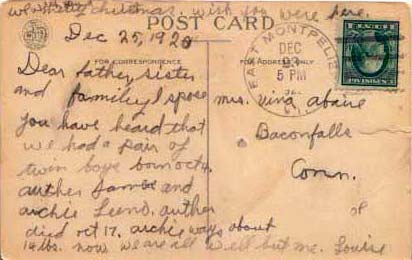 Christmas. wish you were here,
POST CARD
Dec 25, 1920
FOR CORRESPONDENCE
FOR ADDRESS ONLY
EAST MONTPELIER
DEC
23
5 PM
VT.
Dear father, sister
and family I spose
you have heard that
we had a pair of
twin boys born oct 4.
auther James and
archie Leend. auther
died oct 17. archie ways about
14 lbs. now we are all well but me. Louise
mrs. viva abaire
Baconfalls
Conn.